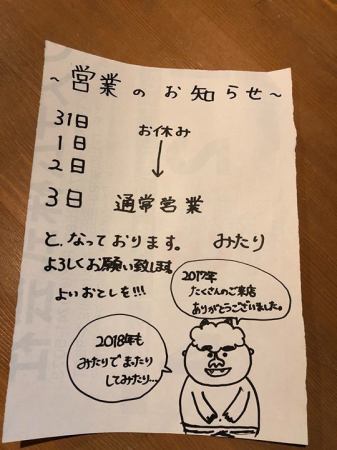 ～営業のお知らせ～
31日
1日 お休み
2日 ↓
3日 通常営業
と、なっております。 みたり
よろしくお願い致します。
よいおとしを!!!
2017年
たくさんのご来店
ありがとうございました。
2018年も
みたりでまったり
してみたり…